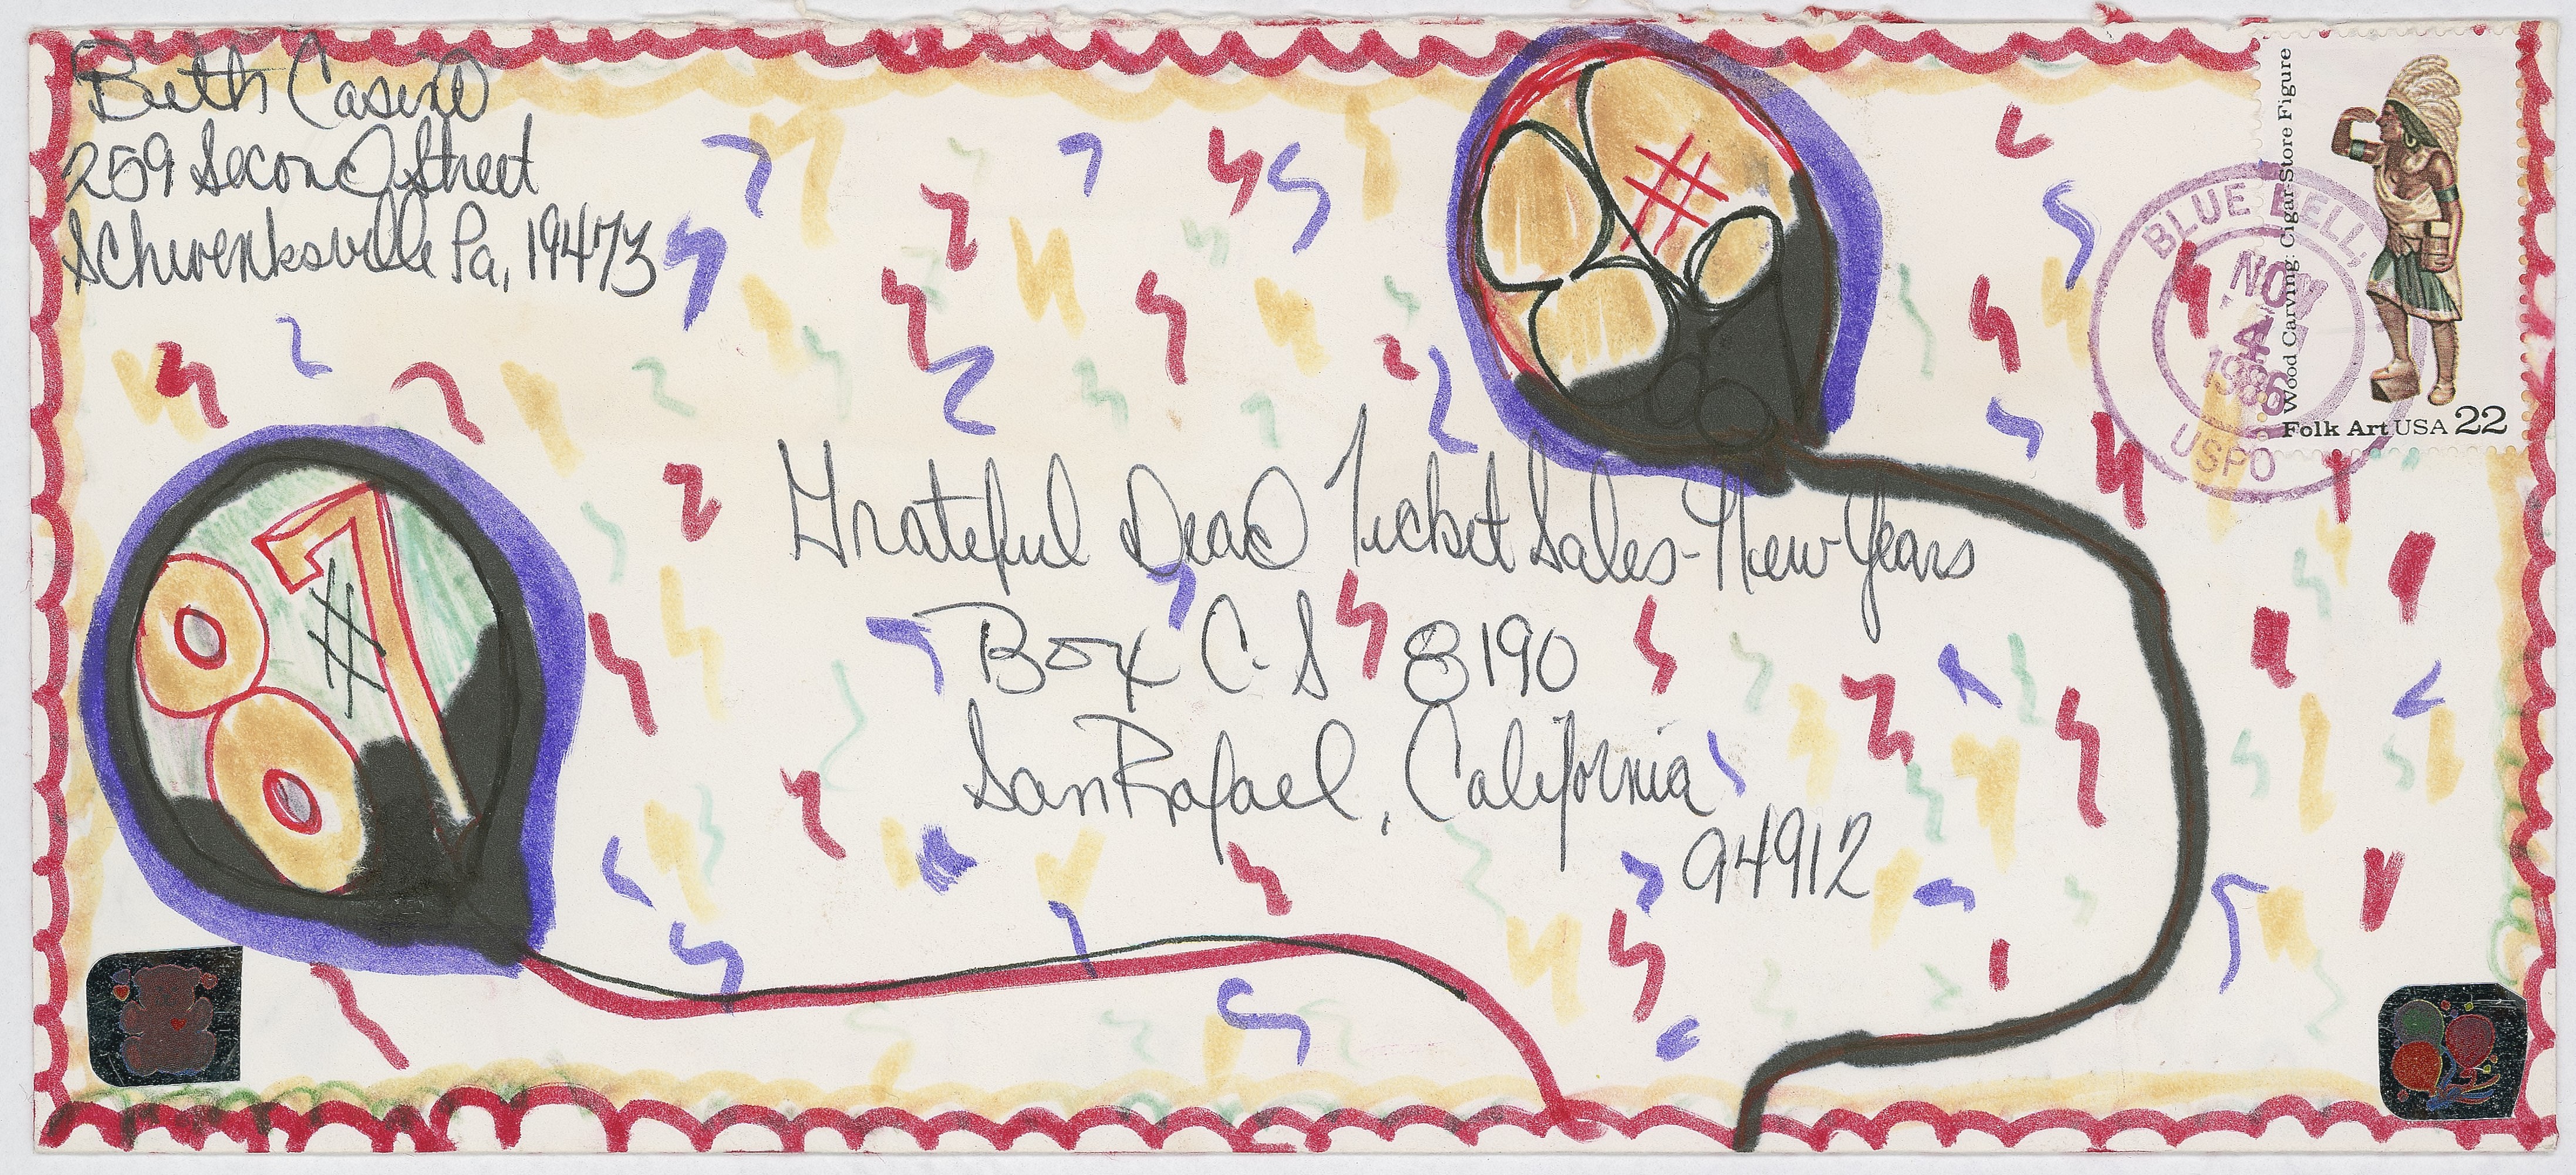 Beth Casino
259 Second Street
Schwenksville Pa, 19473
Wood Carving: Cigar-Store Figure
Folk Art USA 22
BLUE BELL,
NOV
4
1986
USPO
#
87
#
Grateful Dead Ticket Sales-New Years
Box C-S 8190
San Rafael, California
94912